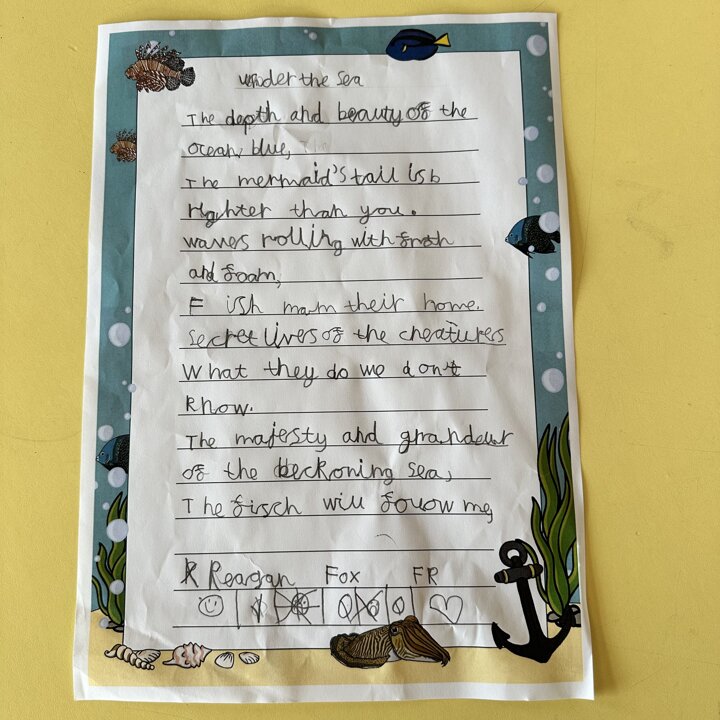 Under the Sea
The depth and beauty of the
ocean, blue,
The mermaid's tail is b
righter than you.
waves rolling with froth
and foam,
Fish mam their home.
Secret lives of the creatures
What they do we don't
know.
The majesty and grandeur
of the beckoning sea,
The firsch will follow me,
R Reagan Fox FR